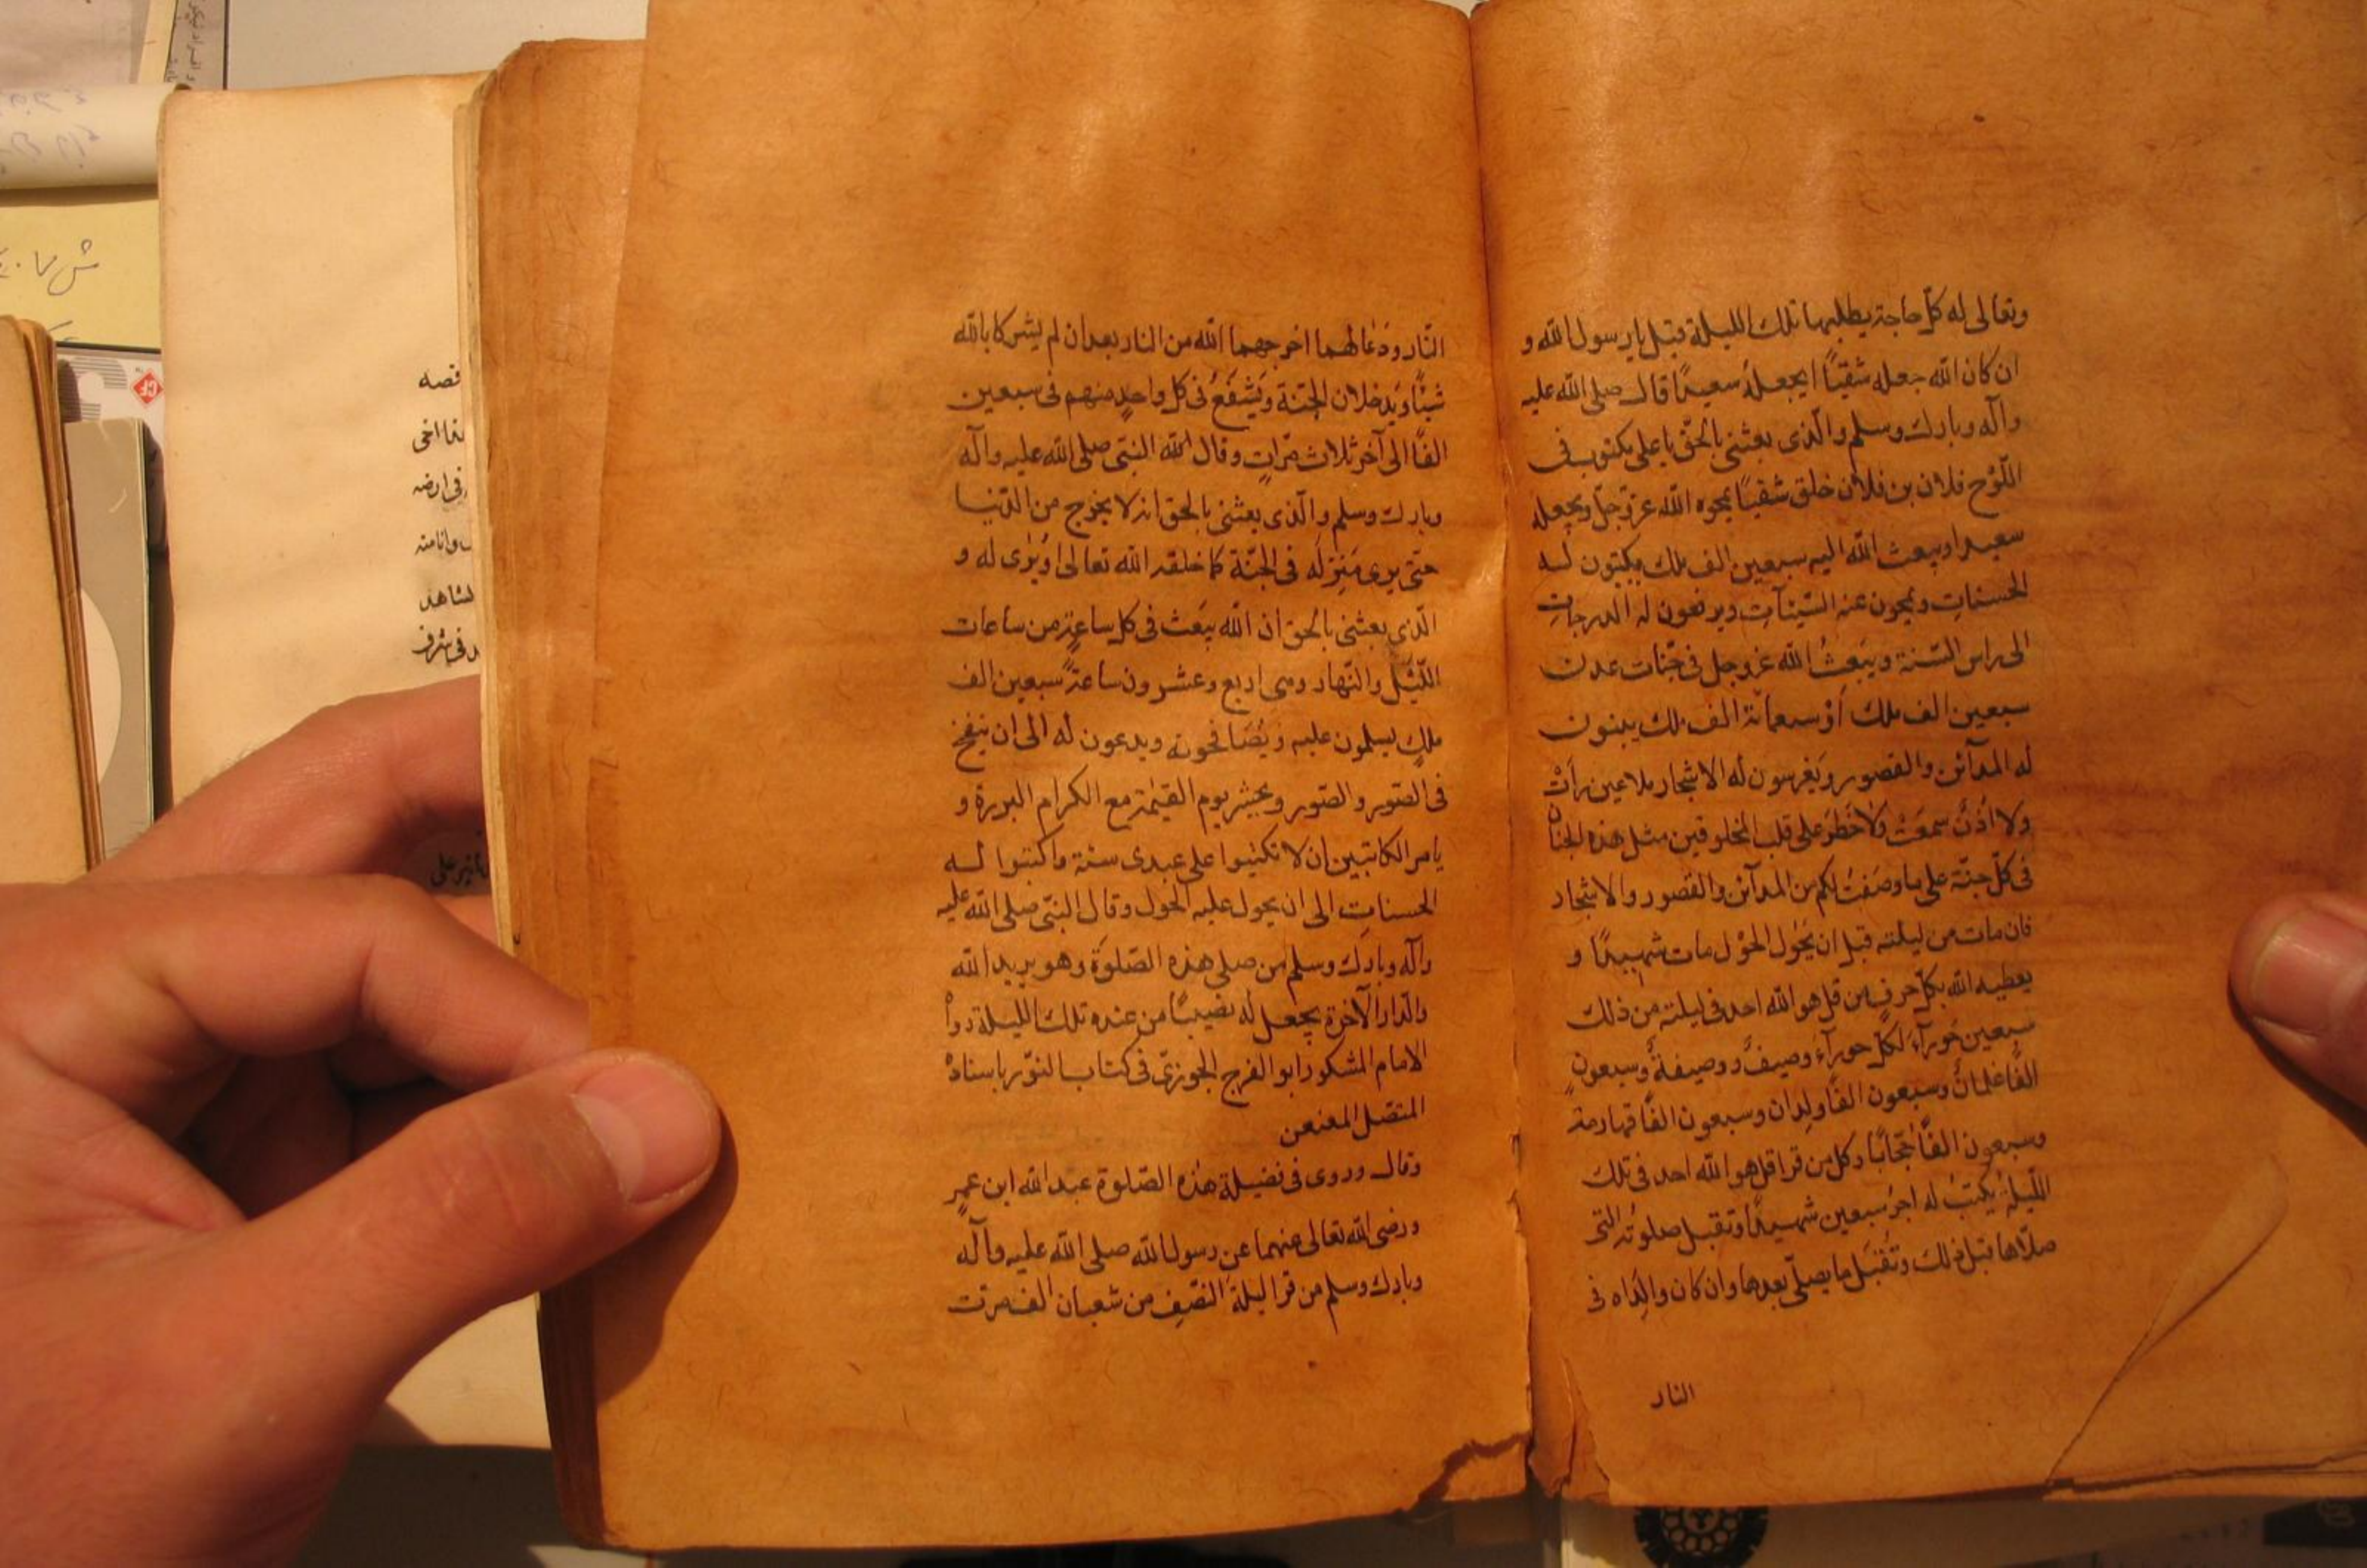 وتعالى له كلّ حاجة يطلبها تلك الليلة قبل يا رسول الله و
ان كان الله جعله شقيّاً ايجعلهُ سعيدًا قال صلى الله عليه
وآله وبارك وسلم والّذى بعثنى بالحقّ يا على مكتوب فى
اللّوْح فلان بن فلان خلق شقيّاً يمحوه الله عزّوجلّ ويجعله
سعيدا ويبعث الله اليه سبعين الف ملك يكتبون لـه
الحسناتِ ويمحون عنه السّيّآتِ ويرفعون له الدرجاتِ
الى راس السّنة ويبَعثُ الله عزوجل فى جنّات عدن
سبعين الف ملك أوْ سبعمائة الف ملك يبنون
له المدآئن والقصور ويَغرسون له الاشجار ملا عين رأتْ
ولا اُذنٌ سمعَتْ ولا خَطَرَ على قلب المخلوقين مثل هذه الجنان
فى كلّ جنّة على ما وصَفتُ لكم من المدآئن والقصور والاشجار
فان مات من ليلته قبل ان يَحُول الحوْل مات شهيدًا و
يعطيه الله بكلّ حرفٍ من قل هو الله احد فى ليلته من ذلك
سبعين حَورآءَ لكلّ حورآءَ وصيفٌ ووصيفةٌ وسبعون
الفًا غلمانٌ وسبعون الفًا ولدان وسبعون الفًا قهارمة
وسبعون الفًا حُجّابًا وكل من قرا قل هو الله احد فى تلك
اللّيلةِ يُكتبُ له اجرُ سبعين شهيدًا وتقبل صلوتُه التى
صلّاها قبل ذلك وتُقبَل ما يصلّى بعدها وان كان والِدَاه فى
النار
النّار ودَعَا لهما اخرجهما الله من النار بعد ان لم يشركا بالله
شيئًا ويَدخلان الجنّة ويَشفَعُ فى كلّ واحدٍ منهم فى سبعين
الفًا الى آخر ثلاث مرّاتٍ وقال الله النبّى صلى الله عليه وآله
وبارك وسلم والّذى بعثنى بالحق انه لا يخرج من الدّنيا
حتى يرى مَنزِلَه فى الجنّة كما خلقه الله تعالى اوْ يُرٰى له و
الّذى بعثنى بالحق ان الله يبَعث فى كل ساعةٍ من ساعات
اللّيْل والنّهار وهى اربع وعشرون ساعةً سبعين الف
ملكٍ يسلمون عليه ويُصَافحونه ويدعون له الى ان ينفخ
فى الصّور والصّور ويحشر يوم القيٰمة مع الكرام البررة و
يامر الكاتبين ان لا تكتبوا على عبدى سنة واكتبوا لـه
الحسناتِ الى ان يحول عليه الحَول وقال النبّى صلى الله عليه
وآله وبارك وسلم من صلى هذه الصّلوةَ وهو يريد الله
والدّار الآخرة يجعل له نصيبًا من عنده تلك الليلة رواهُ
الامام المشكور ابو الفرج الجوزىّ فى كتاب النوّر باسنادهْ
المتصّل المعنعن
وقال وروى فى فضيلة هذه الصّلوة عبد الله ابن عمرٍ
ورضى الله تعالى عنهما عن رسول الله صلى الله عليه وآله
وبارك وسلم من قرا ليلة النّصفِ من شعبان الف مرّت
قصه
فى ارضه
وانامته
لشاهد
فى شرف
تأثير على